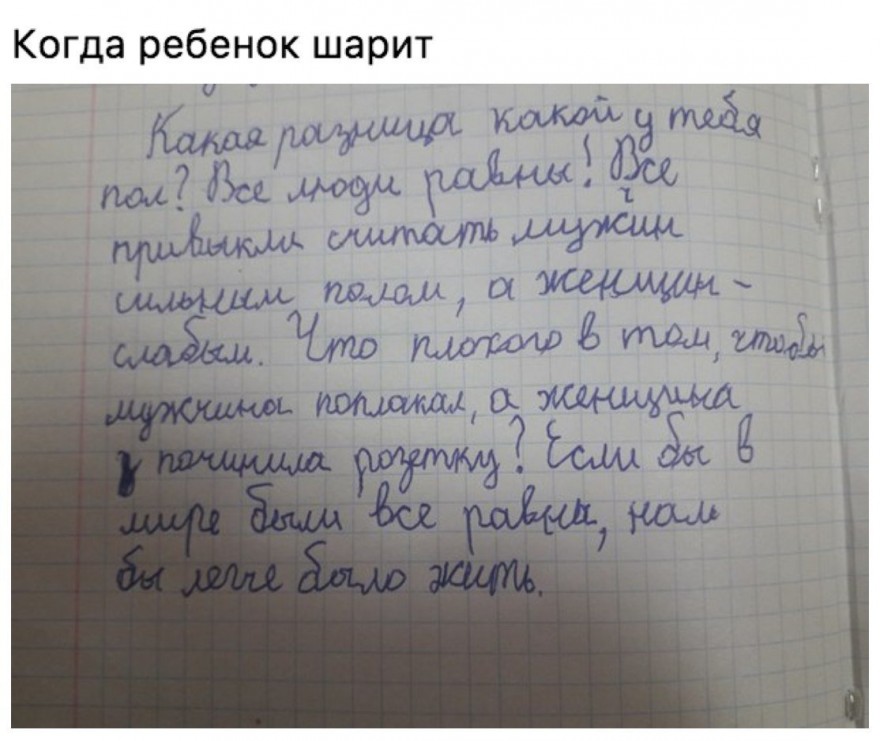 Когда ребенок шарит
Какая разница какой у тебя
пол? Все люди равны! Все
привыкли считать мужчин
сильным полом, а женщин -
слабым. Что плохого в том, чтобы
мужчина поплакал, а женщина
починила розетку? Если бы в
мире были все равны, нам
бы легче было жить.